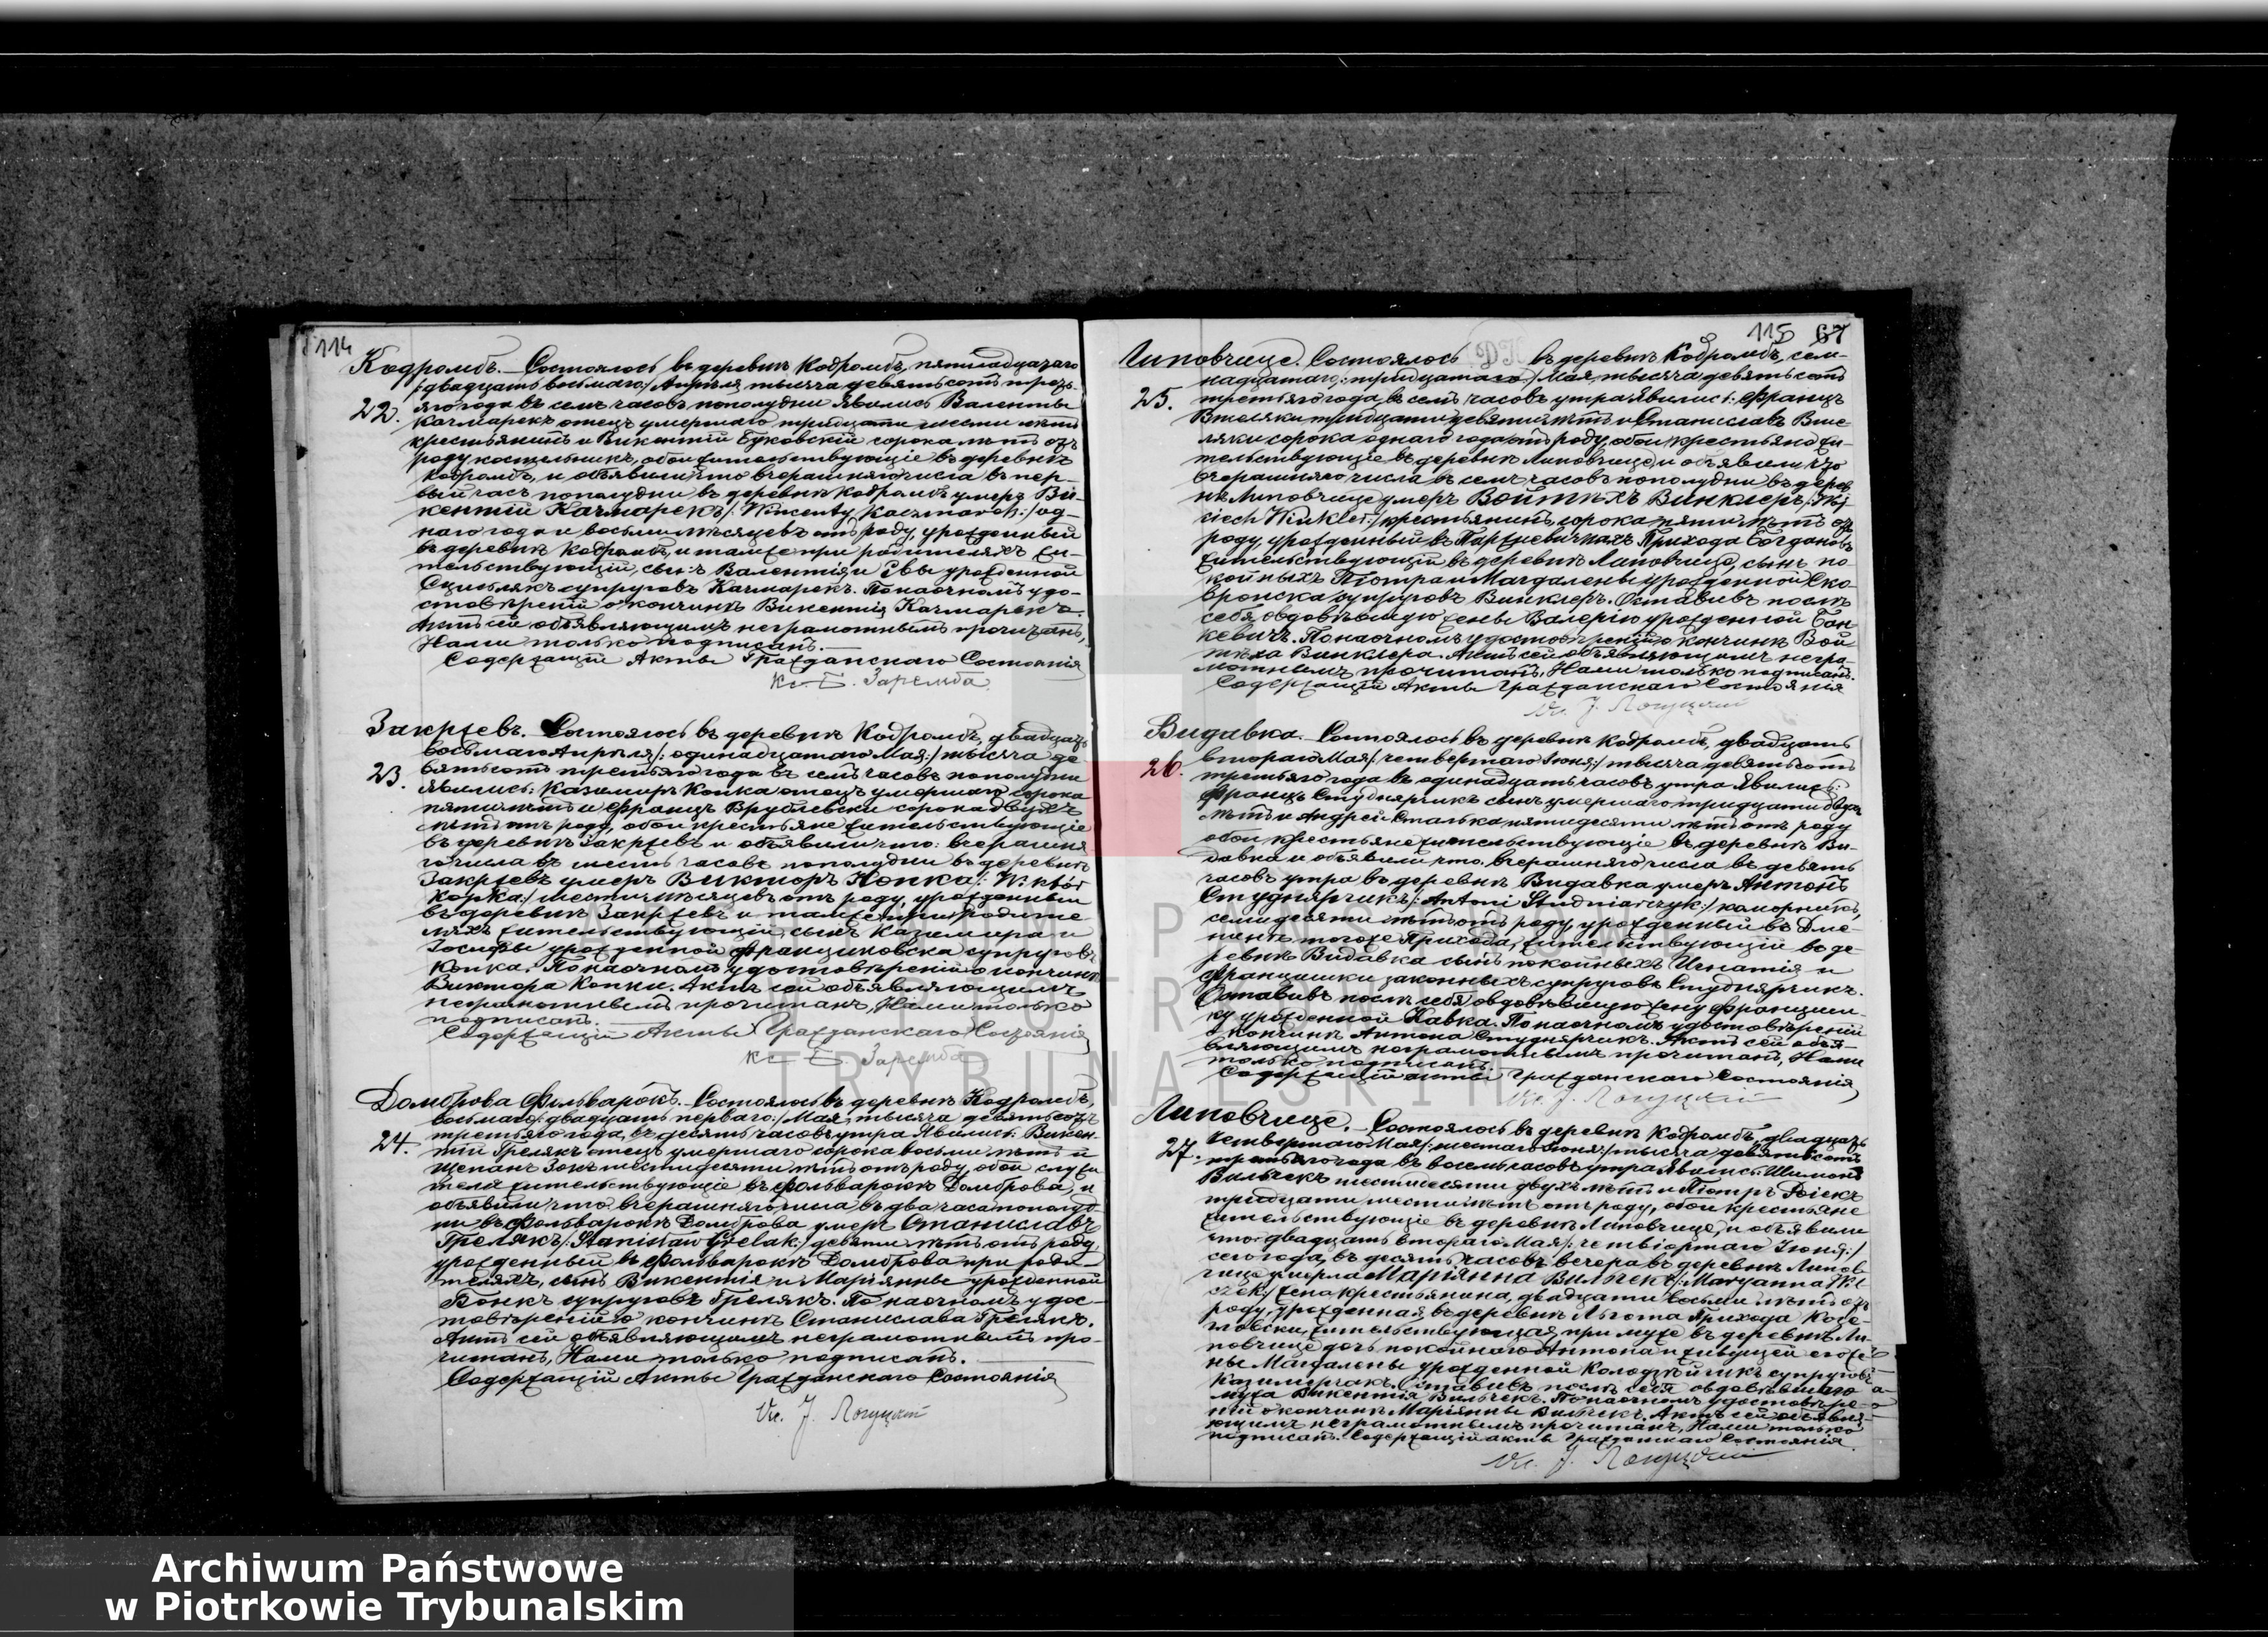 114
Кодромбъ. Состоялось въ деревнѣ Кодромбъ, пятнадцатаго
/:двадцать восьмаго:/ Апрѣля, тысяча девятьсотъ треть-
22. яго года въ семь часовъ пополудни Явились Валенты
Качмарекъ отецъ умершаго тридцати шести лѣтъ
крестьянинъ и Викентій Буковскій сорока лѣтъ отъ
роду костельникъ, обои жительствующіе въ деревнѣ
Кодромбъ, и объявили что вчерашняго числа въ пер-
вый часъ пополудни въ деревнѣ Кодромбъ умеръ Ви-
кентій Качмарекъ /: Wincenty Kaczmarek:/ од-
наго года и восьми мѣсяцевъ отъ роду, урожденный
въ деревнѣ Кодромбъ, и тамже при родителяхъ жи-
тельствующій, сынъ Валентія и Евы урожденной
супруговъ Качмарекъ. По наочномъ удо-
стовѣреніи о кончинѣ Викентія Качмарека.
Актъ сей объявляющимъ неграмотнымъ прочитанъ,
Нами только подписанъ.
Содержащій Акты Гражданскаго Состоянія
Кс. Заремба
Закржевъ. Состоялось въ деревнѣ Кодромбъ, двадцать
восьмаго Апрѣля /: одинадцатаго Мая:/ тысяча де-
23. вятьсотъ третьяго года въ семь часовъ пополудни
явились: Казимиръ Копка отецъ умершаго сорока
пяти лѣтъ и Францъ Врублевски сорока двухъ
лѣтъ отъ роду, обои крестьяне жительствующіе
въ деревнѣ Закржевъ и объявили что: вчерашня-
го числа въ шесть часовъ пополудни въ деревнѣ
Закржевъ умеръ Викторъ Копка /: Wiktór
Kopka:/ шести мѣсяцевъ отъ роду, урожденный
въ деревнѣ Закржевъ и тамже при родите-
ляхъ жительствующій, сынъ Казимира и
Іосифы урожденной Францишковска супруговъ
Копка. По наочномъ удостовѣреніи о кончинѣ
Виктора Копки. Актъ сей объявляющимъ
неграмотнымъ прочитанъ, Нами только
подписанъ.
Содержащій Акты Гражданскаго Состоянія
Кс. Заремба
Домброва Фольварокъ. Состоялось въ деревнѣ Кодромбъ,
восьмаго /:двадцать перваго:/ Мая, тысяча девятьсотъ
третьяго года, въ десять часовъ утра Явились: Викен-
24. тій Грелякъ отецъ умершаго сорока восьми лѣтъ и
Щепанъ Зокъ шестидесяти лѣтъ отъ роду, обои служи-
тели жительствующіе въ фольваркѣ Домброва, и
объявили что вчерашняго числа въ два часа пополуд-
ни въ Фольваркѣ Домброва умеръ Станиславъ
Грелякъ /: Stanisław Grelak:/ девяти лѣтъ отъ роду,
урожденный въ фольваркѣ Домброва при роди-
теляхъ, сынъ Викентія и Маріянны урожденной
Бонкъ супруговъ Грелякъ. По наочномъ удос-
товѣреніи о кончинѣ Станислава Грелякъ.
Актъ сей объявляющимъ неграмотнымъ про-
читанъ, Нами только подписанъ.
Содержащій Акты Гражданскаго Состоянія
115 67
Липовчице. Состоялось въ деревнѣ Кодромбъ, сем-
надцатаго /:тридцатаго:/ Мая, тысяча девятьсотъ
25. третьяго года, въ семь часовъ утра Явились: Францъ
тридцати девяти лѣтъ и Станиславъ
сорока одного года отъ роду, обои крестьяне жи-
тельствующіе въ деревнѣ Липовчице и объявили что
вчерашняго числа въ семь часовъ пополудни въ дерев-
нѣ Липовчице умеръ Войтѣхъ Винклеръ /: Woj-
ciech Winkler:/ крестьянинъ, сорока пяти лѣтъ отъ
роду, урожденный въ Прихода Богдановъ
жительствующій въ деревнѣ Липовчице, сынъ по-
койныхъ Піотра и Магдалены урожденной Ско-
вронска супруговъ Винклеръ. Оставивъ послѣ
себя овдовѣвшую жены Валерію урожденной Бан-
кевичъ. По наочномъ удостовѣреніи о кончинѣ Вой-
тѣха Винклера. Актъ сей объявляющимъ негра-
мотнымъ прочитанъ, Нами только подписанъ.
Содержащій Акты Гражданскаго Состоянія
Видавка. Состоялось въ деревнѣ Кодромбъ, двадцать
втораго Мая /: четвертаго Іюня:/ тысяча девятьсотъ
26. третьяго года въ одинадцать часовъ утра Явились:
Францъ Студнярчикъ сынъ умершаго тридцати двухъ
лѣтъ и Андрей Сталька пятидесяти лѣтъ отъ роду
обои крестьяне жительствующіе въ деревнѣ Ви-
давка и объявили что: вчерашняго числа въ девять
часовъ утра въ деревнѣ Видавка умеръ Антонъ
Студнярчикъ /: Antoni Studniarczyk:/ каморникъ,
семидесяти лѣтъ отъ роду, урожденный въ Дме-
нинѣ тогоже Прихода, жительствующій въ де-
ревнѣ Видавка сынъ покойныхъ Игнатія и
Францишки законныхъ супруговъ Студнярчикъ.
Оставивъ послѣ себя овдовѣвшую жену Францишк-
ку урожденной Кавка. По наочномъ удостовѣреніи
о кончинѣ Антона Студнярчикъ. Актъ сей объя-
вляющимъ неграмотнымъ прочитанъ, Нами
только подписанъ.
Содержащій акты Гражданскаго Состоянія
Липовчице. Состоялось въ деревнѣ Кодромбъ, двадцать
четвертаго Мая /: шестаго Іюня:/ тысяча девятьсотъ
27. третьяго года въ восемь часовъ утра Явились: Шимонъ
Вильчекъ шестидесяти двухъ лѣтъ и Піотръ
тридцати шести лѣтъ отъ роду, обои крестьяне
жительствующіе въ деревнѣ Липовчице, и объявили
что двадцать втораго Мая /: четвертаго Іюня:/
сего года, въ десять часовъ вечера въ деревнѣ Липов-
чице умерла Маріянна Вильчекъ /: Maryanna Wil-
czek:/ жена крестьянина, двадцати восьми лѣтъ отъ
роду, урожденная въ деревнѣ Льгота Прихода Кобе-
ловски, жительствующая при мужѣ въ деревнѣ Ли-
повчице дочь покойнаго Антона и живущей его же-
ны Магдалены урожденной Колодзѣйчикъ супруговъ
Казимерчакъ. Оставивъ послѣ себя овдовѣвшаго
мужа Викентія Вильчекъ. По наочномъ удостовѣре-
ніи о кончинѣ Маріянны Вильчекъ. Актъ сей объявля-
ющимъ неграмотнымъ прочитанъ, Нами только
подписанъ. Содержащій акты Гражданскаго Состоянія.
Archiwum Państwowe
w Piotrkowie Trybunalskim